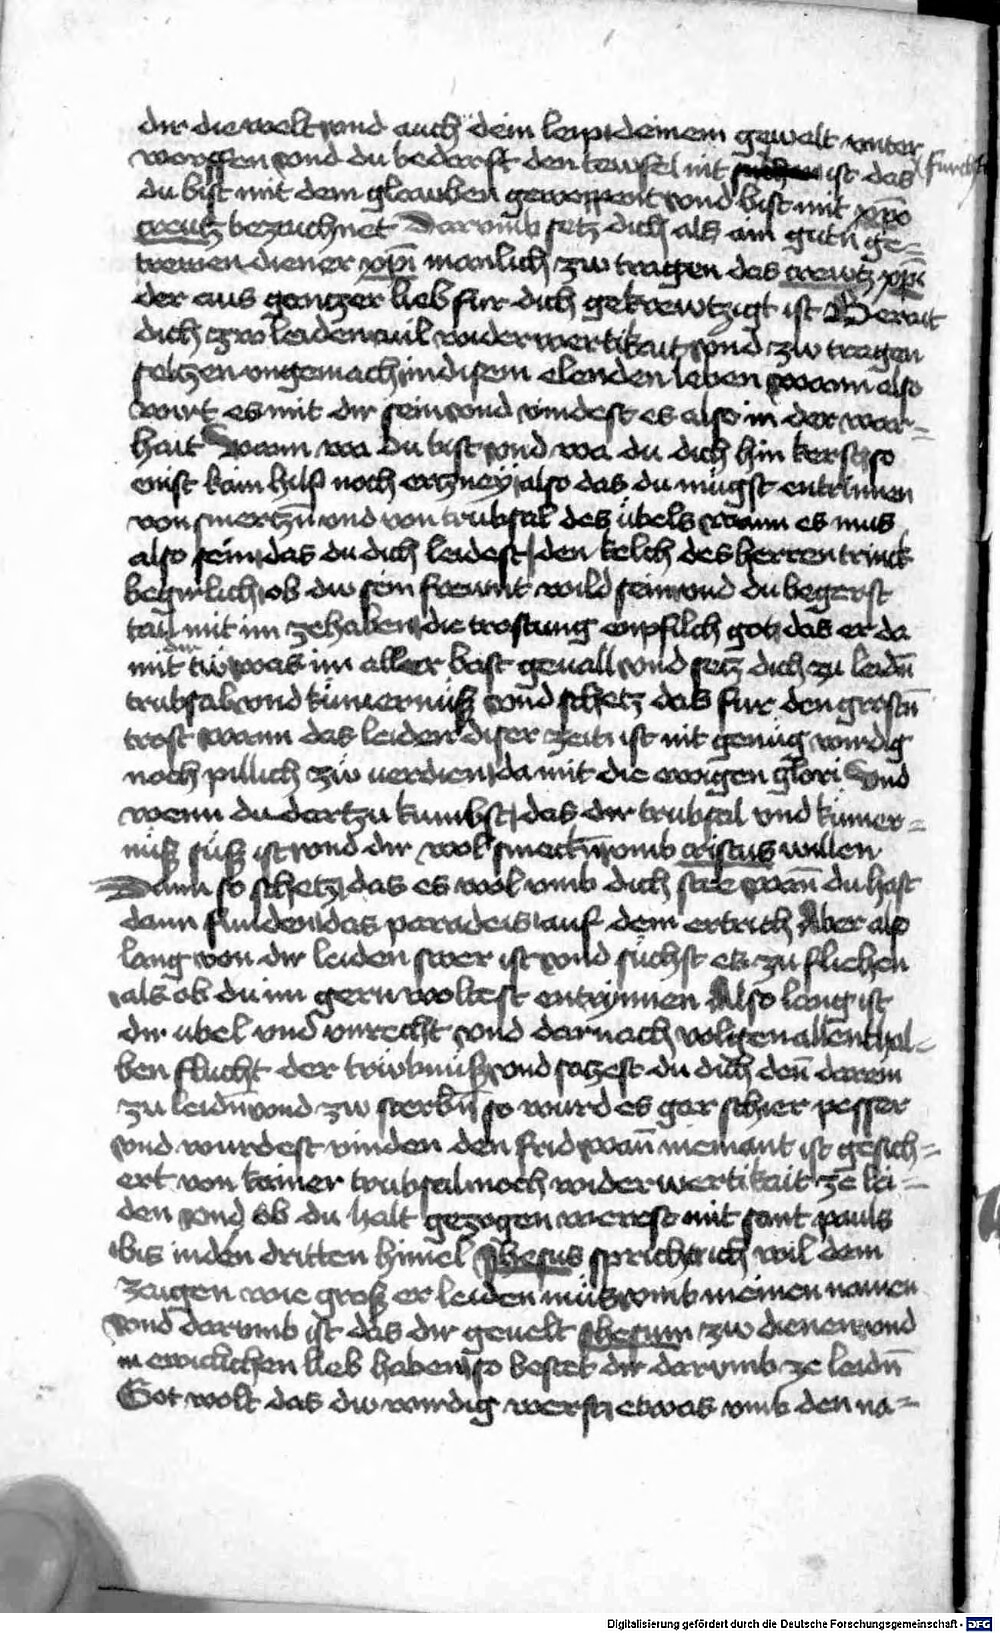 dir die welt vnd auch dein leip deinem gewalt vnter
worffen vnd du bedarfft den tewfel nit ist das furchten
du bist mit dem glauben gewappent vnd bist mit xpo
creutz bezaichnet Darvmb setz dich als ain gutñ ge=
trewen diener xpi manlich zw tragen das crewtz xpi
der aus gantzer lieb fur dich gekrewtzigt ist Berait
dich zw leiden vil widerwertikait vnd zw tragen
soltzen vngemach in disem elenden leben wann also
wirt es mit dir sein vnd vindest es also in der war=
hait wann wa du bist vnd wa du dich hin kerst so
enist kain hilf noch ertzney also das du mügst entrinnen
von smertzñ vnd von trubsal des übels wann es mus
also sein das du dich leidest den kelch des herren trinck
begirlich ob du sein freunt wild sein vnd du begerst
tail mit im ze haben die trostung enpfilch got das er da
mit dir tü was im aller bast geuall vnd setz dich zu leidñ
trubsal vnd kümernüß vnd schetz das fur den grostñ
trost wann das leiden diser zeit ist nit genüg wirdig
noch pillich zw uerdien da mit die ewigen glori vnd
wenn du dartzu kumbst das dir trubsal vnd kümer=
nüß süß ist vnd dir wol smeckñ vmb cristus willen
Dann so schetz das es wol vmb dich stee wañ du hast
dann funden das paradeis auf dem ertrich Aber als
lang von dir leiden swer ist vnd suchst es zu fliehen
als ob du im gern woltest entrynnen Also lang ist
dir übel vnd vnrecht vnd darnach volgen allenthal=
ben flucht der trübnüß vnd setzest du dich deñ darein
zu leidñ vnd zw sterbñ so wurd es gar schier pesser
vnd wurdest vinden den frid wañ niemant ist gesich=
ert von kainer trubsal noch widerwertikait ze lei=
den vnd ob du halt gezogen werest mit sant pauls
bis in den dritten himel Jhesus spricht ich wil dem
zaigen wie groß er leiden müs vmb meinen namen
vnd darumb ist das dir geuelt Jhesum zw dienen vnd
in ewicklichen lieb haben so bestet dir darvmb ze leidñ
Got wolt das du wirdig werst etwas vmb den na=
Digitalisierung gefördert durch die Deutsche Forschungsgemeinschaft - DFG